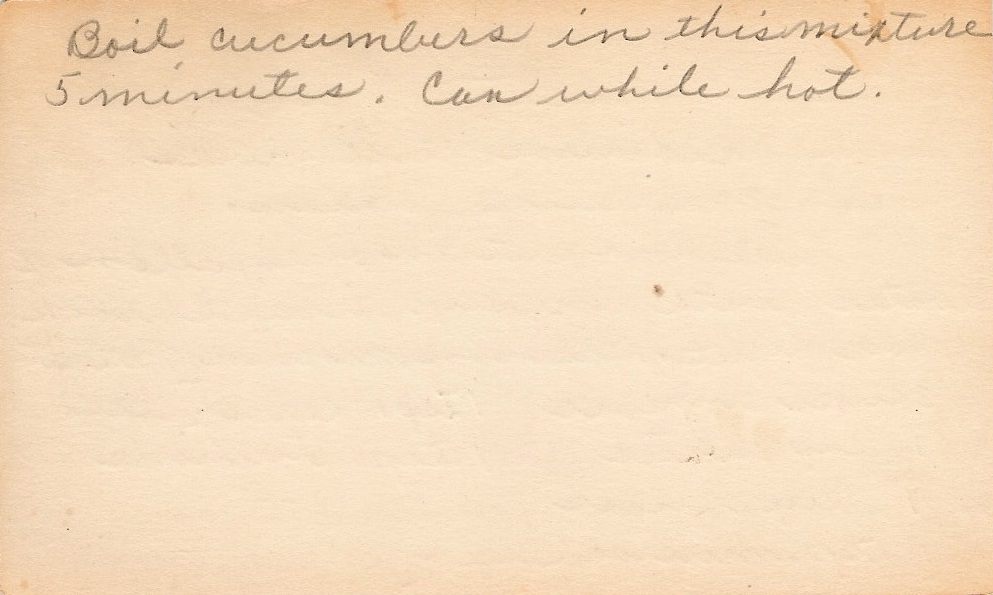 Boil cucumbers in this mixture
5 minutes. Can while hot.